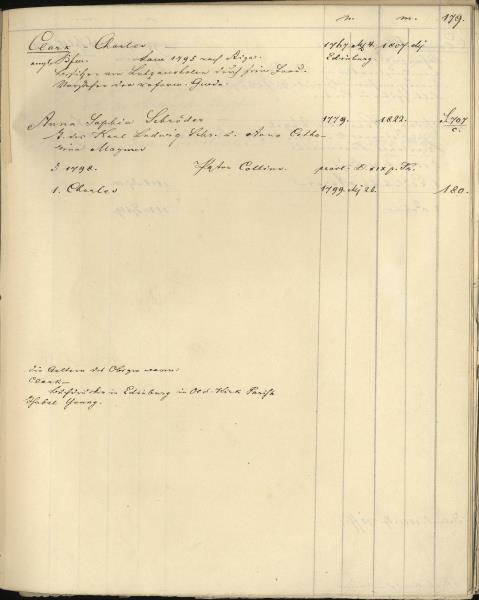 n. m. 179.
Clark Charles 1767. Mz 4. 1807. Mz
engl. Kfm. kam 1795 nach Riga. Edinburg.
Vorsteher der reform. Gmde.
Anna Sophia Schröder 1779. 1822. S. 707
T. des Karl Ludwig Schr. u. Anna Cathe- c.
rina Magnus
1798. Pastor Collins. p. Tr.
1. Charles 1799. 22. 180.
die Aeltern des Obigen waren:
Clark
Buchdrucker in Edinburg in Old-Kirk Parish
Isabel Young.